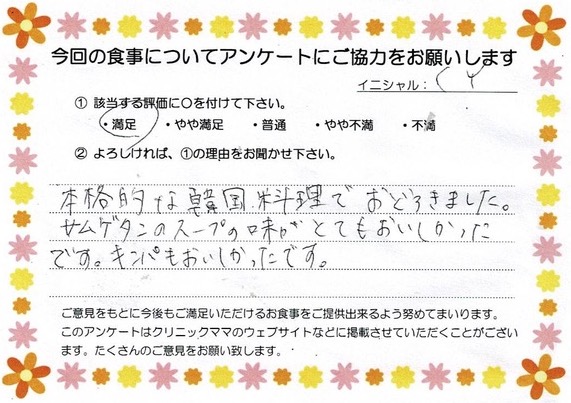 今回の食事についてアンケートにご協力をお願いします
イニシャル：
① 該当する評価に〇を付けて下さい。
・満足 ・やや満足 ・普通 ・やや不満 ・不満
② よろしければ、①の理由をお聞かせ下さい。
本格的な韓国料理でおどろきました。
サムゲタンのスープの味がとてもおいしかった
です。キンパもおいしかったです。
ご意見をもとに今後もご満足いただけるお食事をご提供出来るよう努めてまいります。
このアンケートはクリニックママのウェブサイトなどに掲載させていただくことがござい
ます。たくさんのご意見をお願い致します。